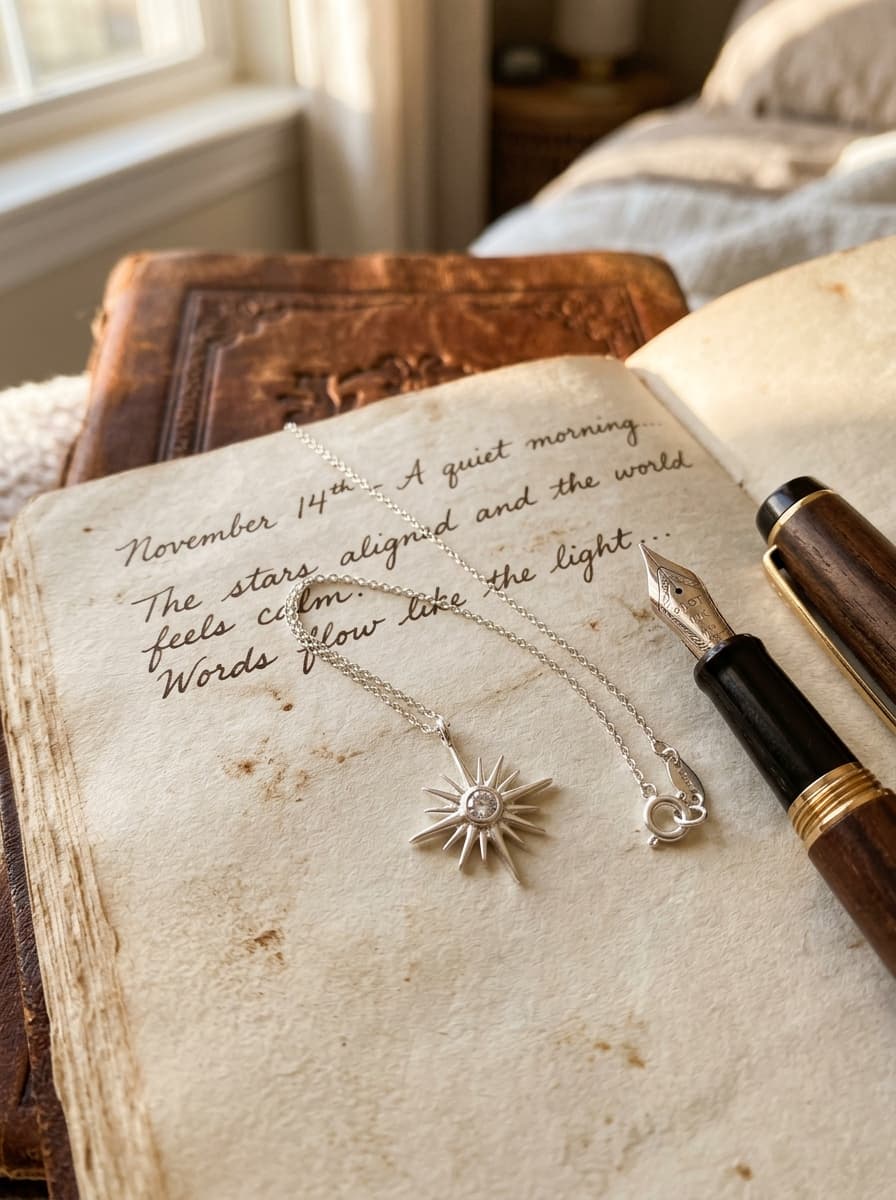 November 14th - A quiet morning...
The stars aligned and the world
feels calm.
Words flow like the light...